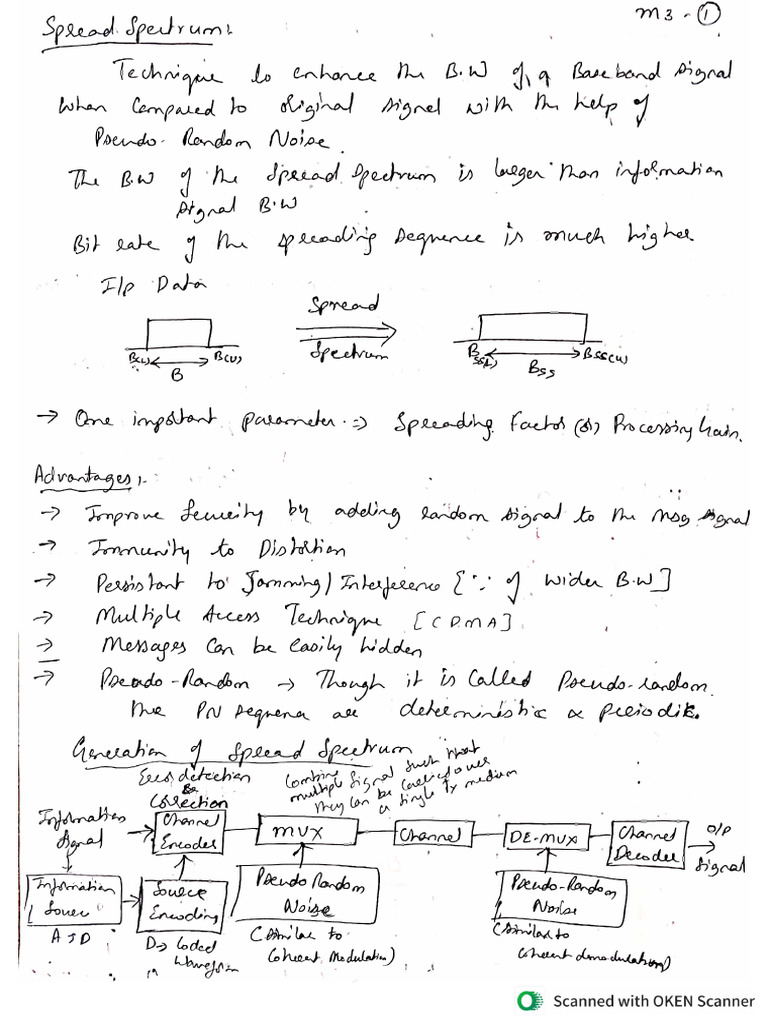 M3 - ①
Spread Spectrum:
Technique to enhance the B.W of a Baseband signal
when Compared to original signal with the help of
Pseudo-Random Noise.
The B.W of the Spread Spectrum is larger than information
signal B.W
Bit rate of the spreading sequence is much higher
I/p Data
Spread
Spectrum
B(L) B(U)
B
BSS(L) BSS(U)
BSS
→ One important parameter ⇒ Spreading Factor (or) Processing Gain.
Advantages:
→ Improve Security by adding random signal to the msg signal
→ Immunity to Distortion
→ Persistant to Jamming/Interference {∵ of wider B.W]
→ Multiple Access Technique [CDMA]
→ Messages can be easily hidden
→ Pseudo-Random → Though it is called Pseudo-random
the PN sequence are deterministic & periodic.
Generation of Spread Spectrum
Error detection
&
Correction
Combine
multiple signal such that
they can be carried over
a single Tx medium
Information
signal
Channel
Encoder
MUX
Channel
DE-MUX
Channel
Decoder
O/P
Signal
Information
Source
A to D
Source
Encoding
D → Coded
Waveform
Pseudo Random
Noise
(Similar to
Coherent Modulation)
Pseudo-Random
Noise
(similar to
Coherent demodulation)
Scanned with OKEN Scanner